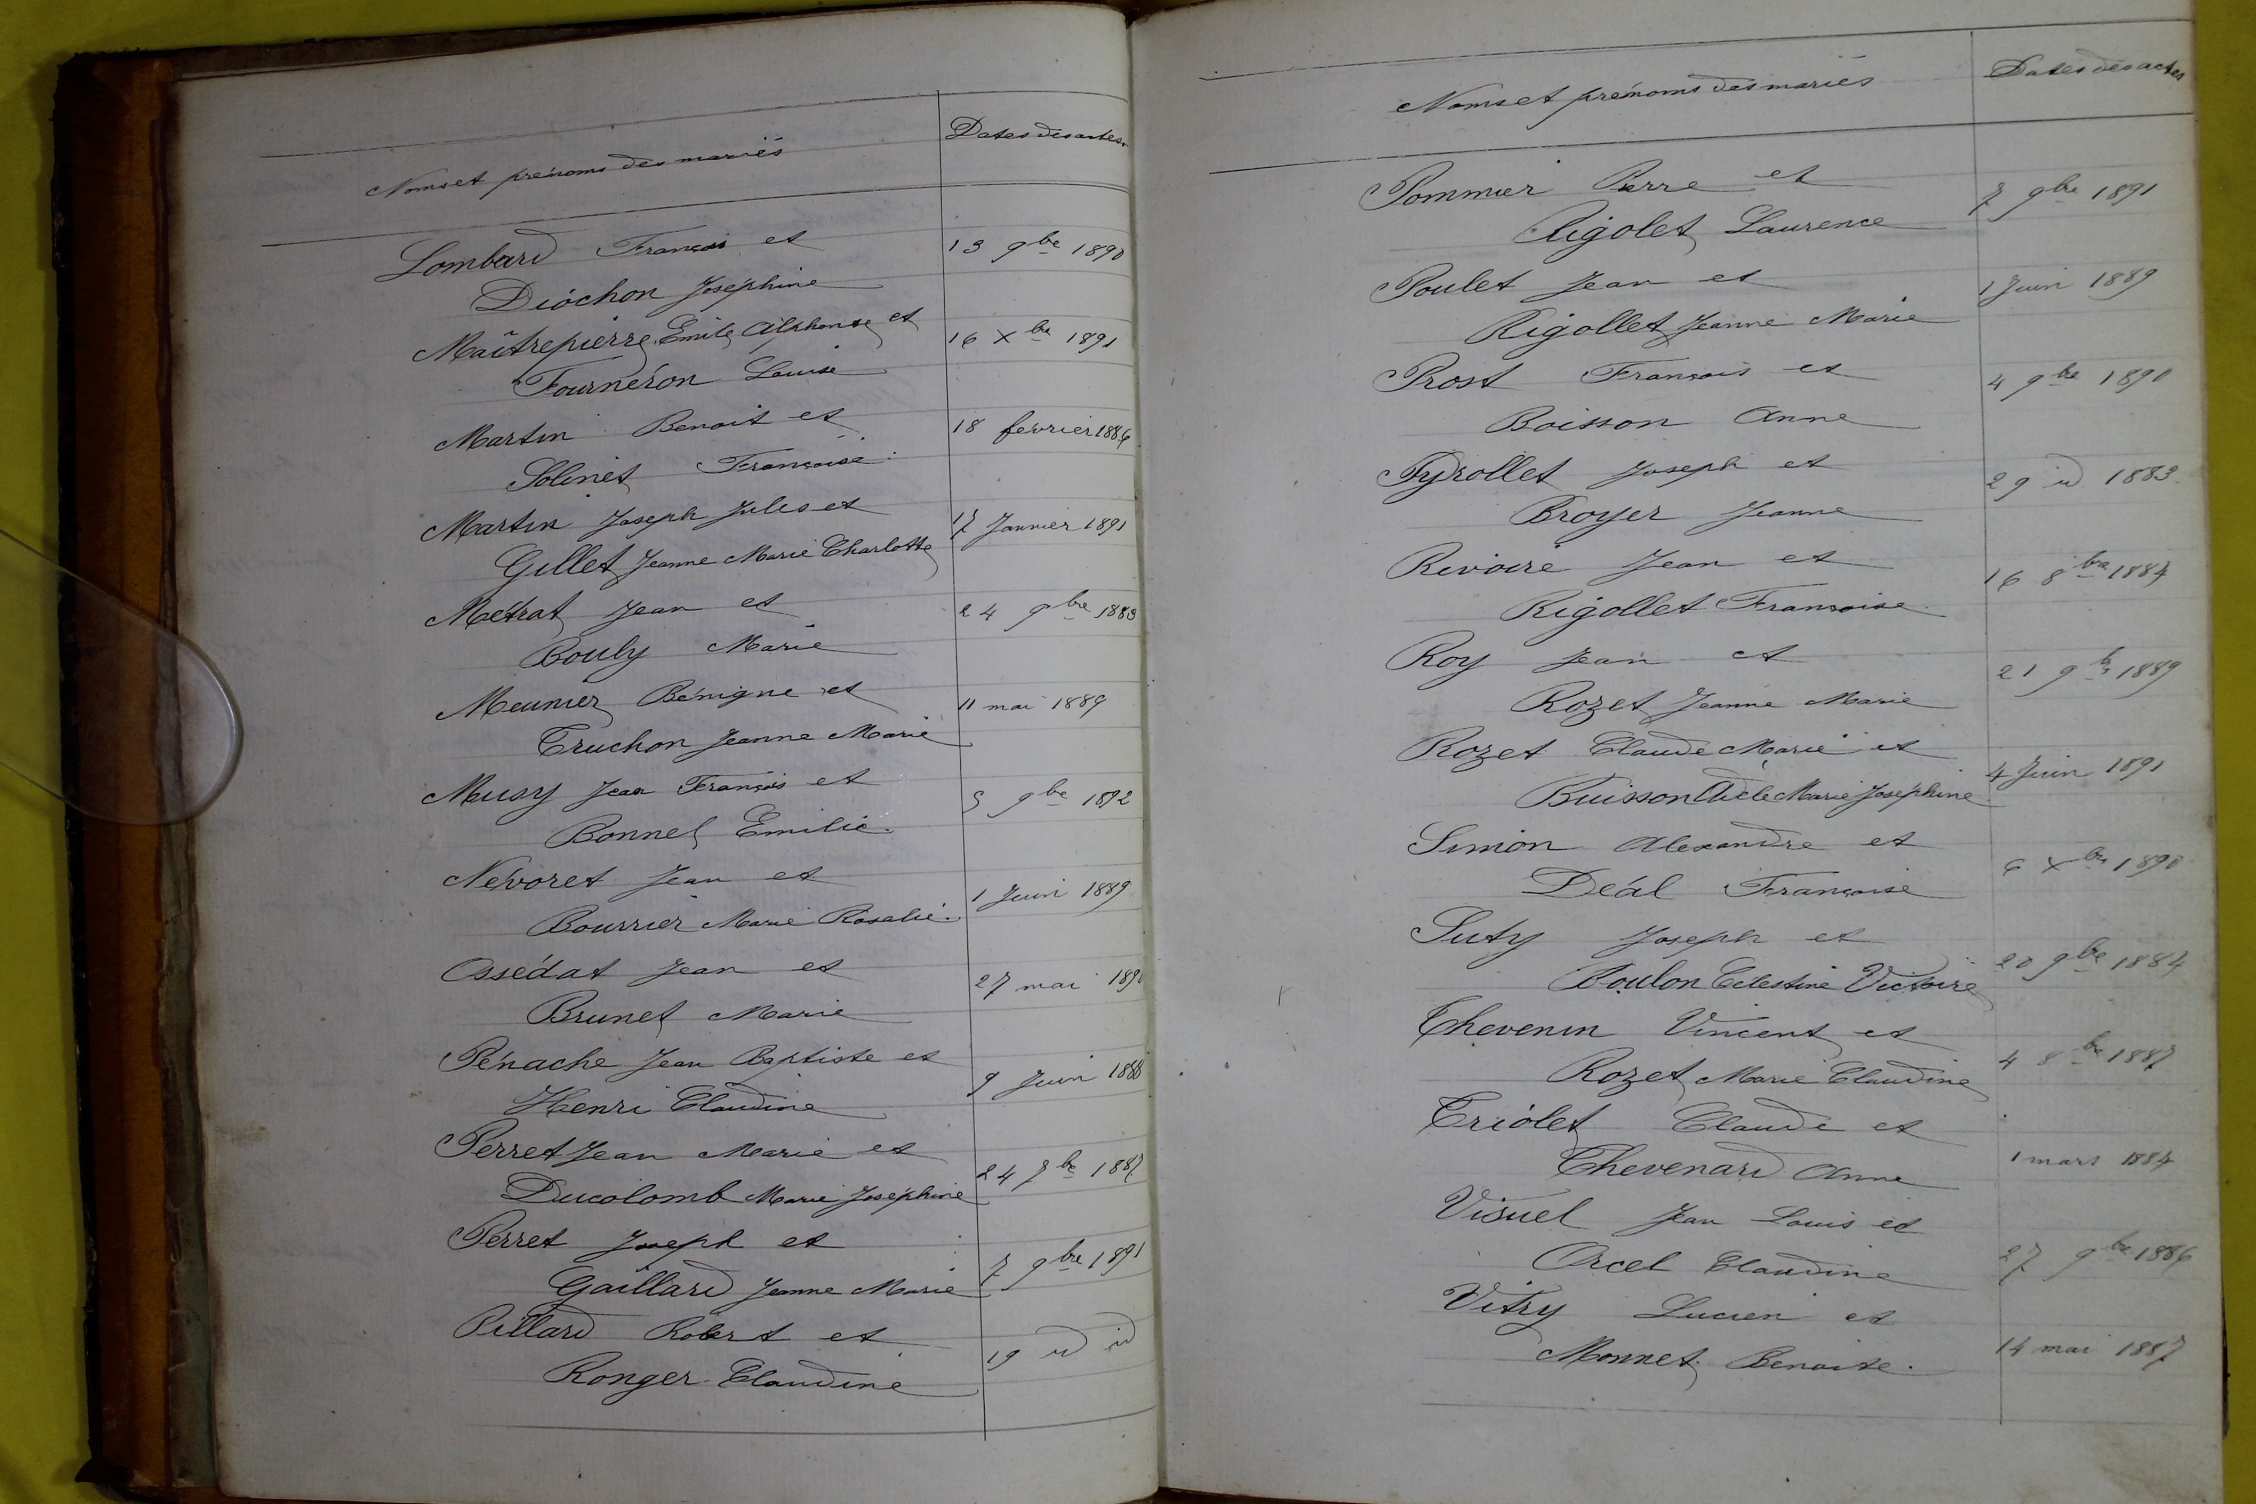 Noms et prénoms des mariés Dates des actes
Lombard François et 13 9bre 1890
Diochon Joséphine
Maîtrepierre Emile Alphonse et 16 Xbre 1891
Fourneron Louise
Martin Benoit et 18 février 1886
Solinet Françoise
Martin Joseph Jules et 17 Janvier 1891
Gillet Jeanne Marie Charlotte
Métrat Jean et 24 9bre 1883
Bouly Marie
Meunier Bénigne et 11 mai 1889
Truchon Jeanne Marie
Musy Jean François et 5 9bre 1892
Bonnet Emilie
Névoret Jean et 1 Juin 1889
Bourrier Marie Rosalie
Ossédat Jean et 27 mai 1890
Brunet Marie
Pénache Jean Baptiste et 9 Juin 1888
Henri Claudine
Perret Jean Marie et 24 7bre 1887
Ducolomb Marie Joséphine
Perret Joseph et 7 9bre 1891
Gaillard Jeanne Marie
Pillard Robert et 19 id id
Ronger Claudine
Noms et prénoms des mariés Dates des actes
Pommier Pierre et 7 9bre 1891
Rigolet Laurence
Poulet Jean et 1 Juin 1889
Rigollet Jeanne Marie
Prost François et 4 9bre 1890
Boisson Anne
Pyrollet Joseph et 29 id 1883
Broyer Jeanne
Rivoire Jean et 16 8bre 1884
Rigollet Françoise
Roy Jean et 21 9bre 1889
Rozet Jeanne Marie
Rozet Claude Marie et 4 Juin 1891
Buisson Marie Joséphine
Simon Alexandre et 6 Xbre 1890
Déal Françoise
Suty Joseph et 20 9bre 1884
Boulon Célestine Victoire
Thevenin Vincent et 4 8bre 1887
Rozet Marie Claudine
Triolet Claude et 1 mars 1884
Thevenard Anne
Visuel Jean Louis et 27 9bre 1886
Orcel Claudine
Vitry Lucien et 14 mai 1887
Monnet Benoite